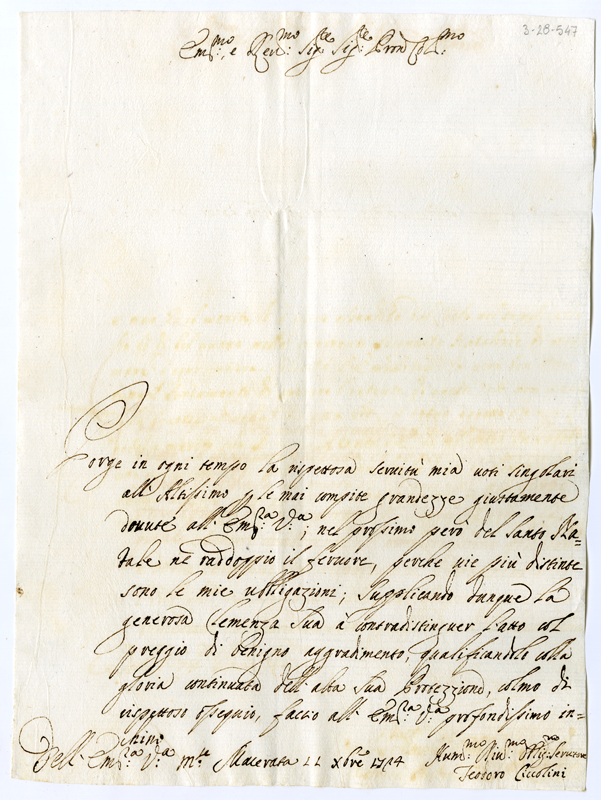 3-28-547
Em.mo e Rev.mo Sig.re Sig.re Pron Col.mo
Porge in ogni tempo la rispettosa servitù mia voti singolari
all'Altissimo p le mai compite grandezze giustamente
dovute all'Em.za V.ra; nel prossimo però del Santo Na=
tale ne raddoppio il fervore, perche vie più distinte
sono le mie obligazioni; Supplicando dunque la
generosa Clemenza Sua à contradistinguer l'atto col
preggio di benigno aggradimento, qualificandolo colla
gloria continuata dell'alta Sua Protezzione, colmo di
rispettoso ossequio, faccio all'Em.za V.ra profondissimo in=
chino
Dell'Em.za V.ra Macerata 11 Xbre 1724
Hum.mo Div.mo Obl.mo Servitore
Teodoro Ciccolini